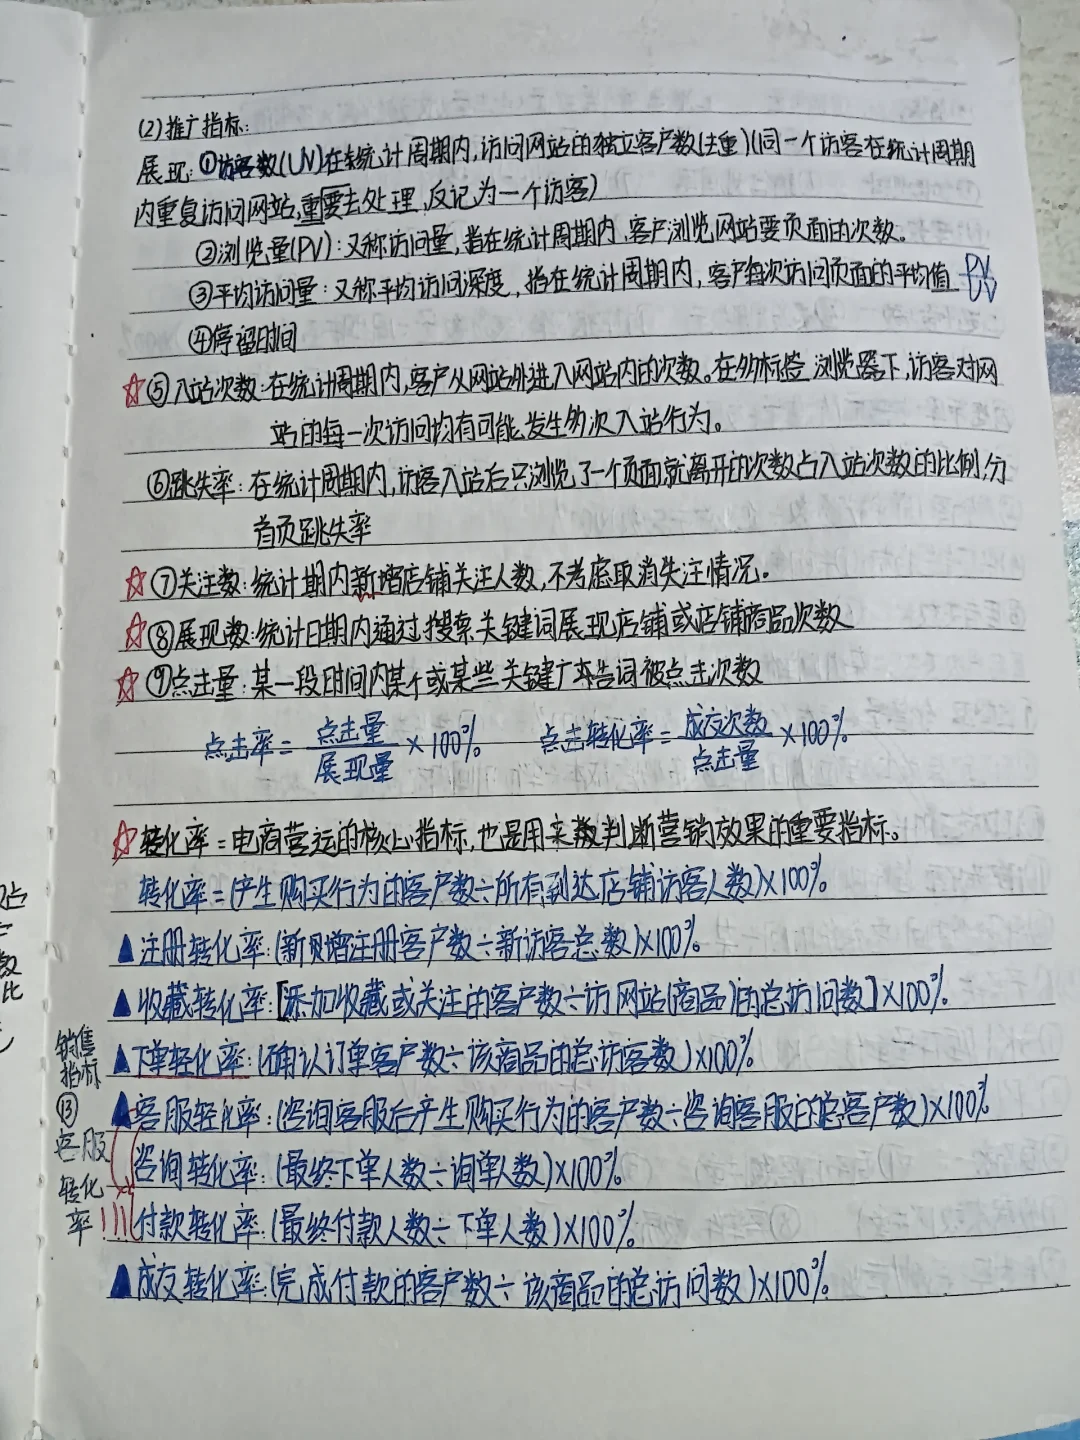 (2)推广指标:
展现:①访客数(UV)在统计周期内,访问网站的独立客户数(去重)(同一个访客在统计周期
内重复访问网站,重要去处理,反记为一个访客)
②浏览量(PV):又称访问量,指在统计周期内,客户浏览网站要页面的次数。
③平均访问量:又称平均访问深度,指在统计周期内,客户每次访问页面的平均值 PV
④停留时间
☆⑤入站次数:在统计周期内,客户从网站外进入网站内的次数。在多标签 浏览器下,访客对网
站的每一次访问均有可能发生多次入站行为。
⑥跳失率:在统计周期内,访客入站后只浏览了一个页面就离开的次数占入站次数的比例,分
首页跳失率
☆⑦关注数:统计期内新增店铺关注人数,不考虑取消关注情况。
☆⑧展现数:统计日期内通过搜索关键词展现店铺或店铺商品次数
☆⑨点击量:某一段时间内某个或某些关键广告词被点击次数
点击率=点击量/展现量×100% 点击转化率=成交次数/点击量×100%
☆转化率=电商营运的核心指标,也是用来判断营销效果的重要指标。
转化率=(产生购买行为的客户数÷所有到达店铺访客人数)×100%
▲注册转化率:(新增注册客户数÷新访客总数)×100%
▲收藏转化率:[添加收藏或关注的客户数÷访网站(商品)的总访问数]×100%
▲下单转化率:(确认订单客户数÷该商品的总访客数)×100%
▲客服转化率:(咨询客服后产生购买行为的客户数÷咨询客服的总客户数)×100%
咨询转化率:(最终下单人数÷询单人数)×100%
!!!付款转化率:(最终付款人数÷下单人数)×100%
▲成交转化率:(完成付款的客户数÷该商品的总访问数)×100%
销售
指标
⑬
客服
转化
率
占
数
比